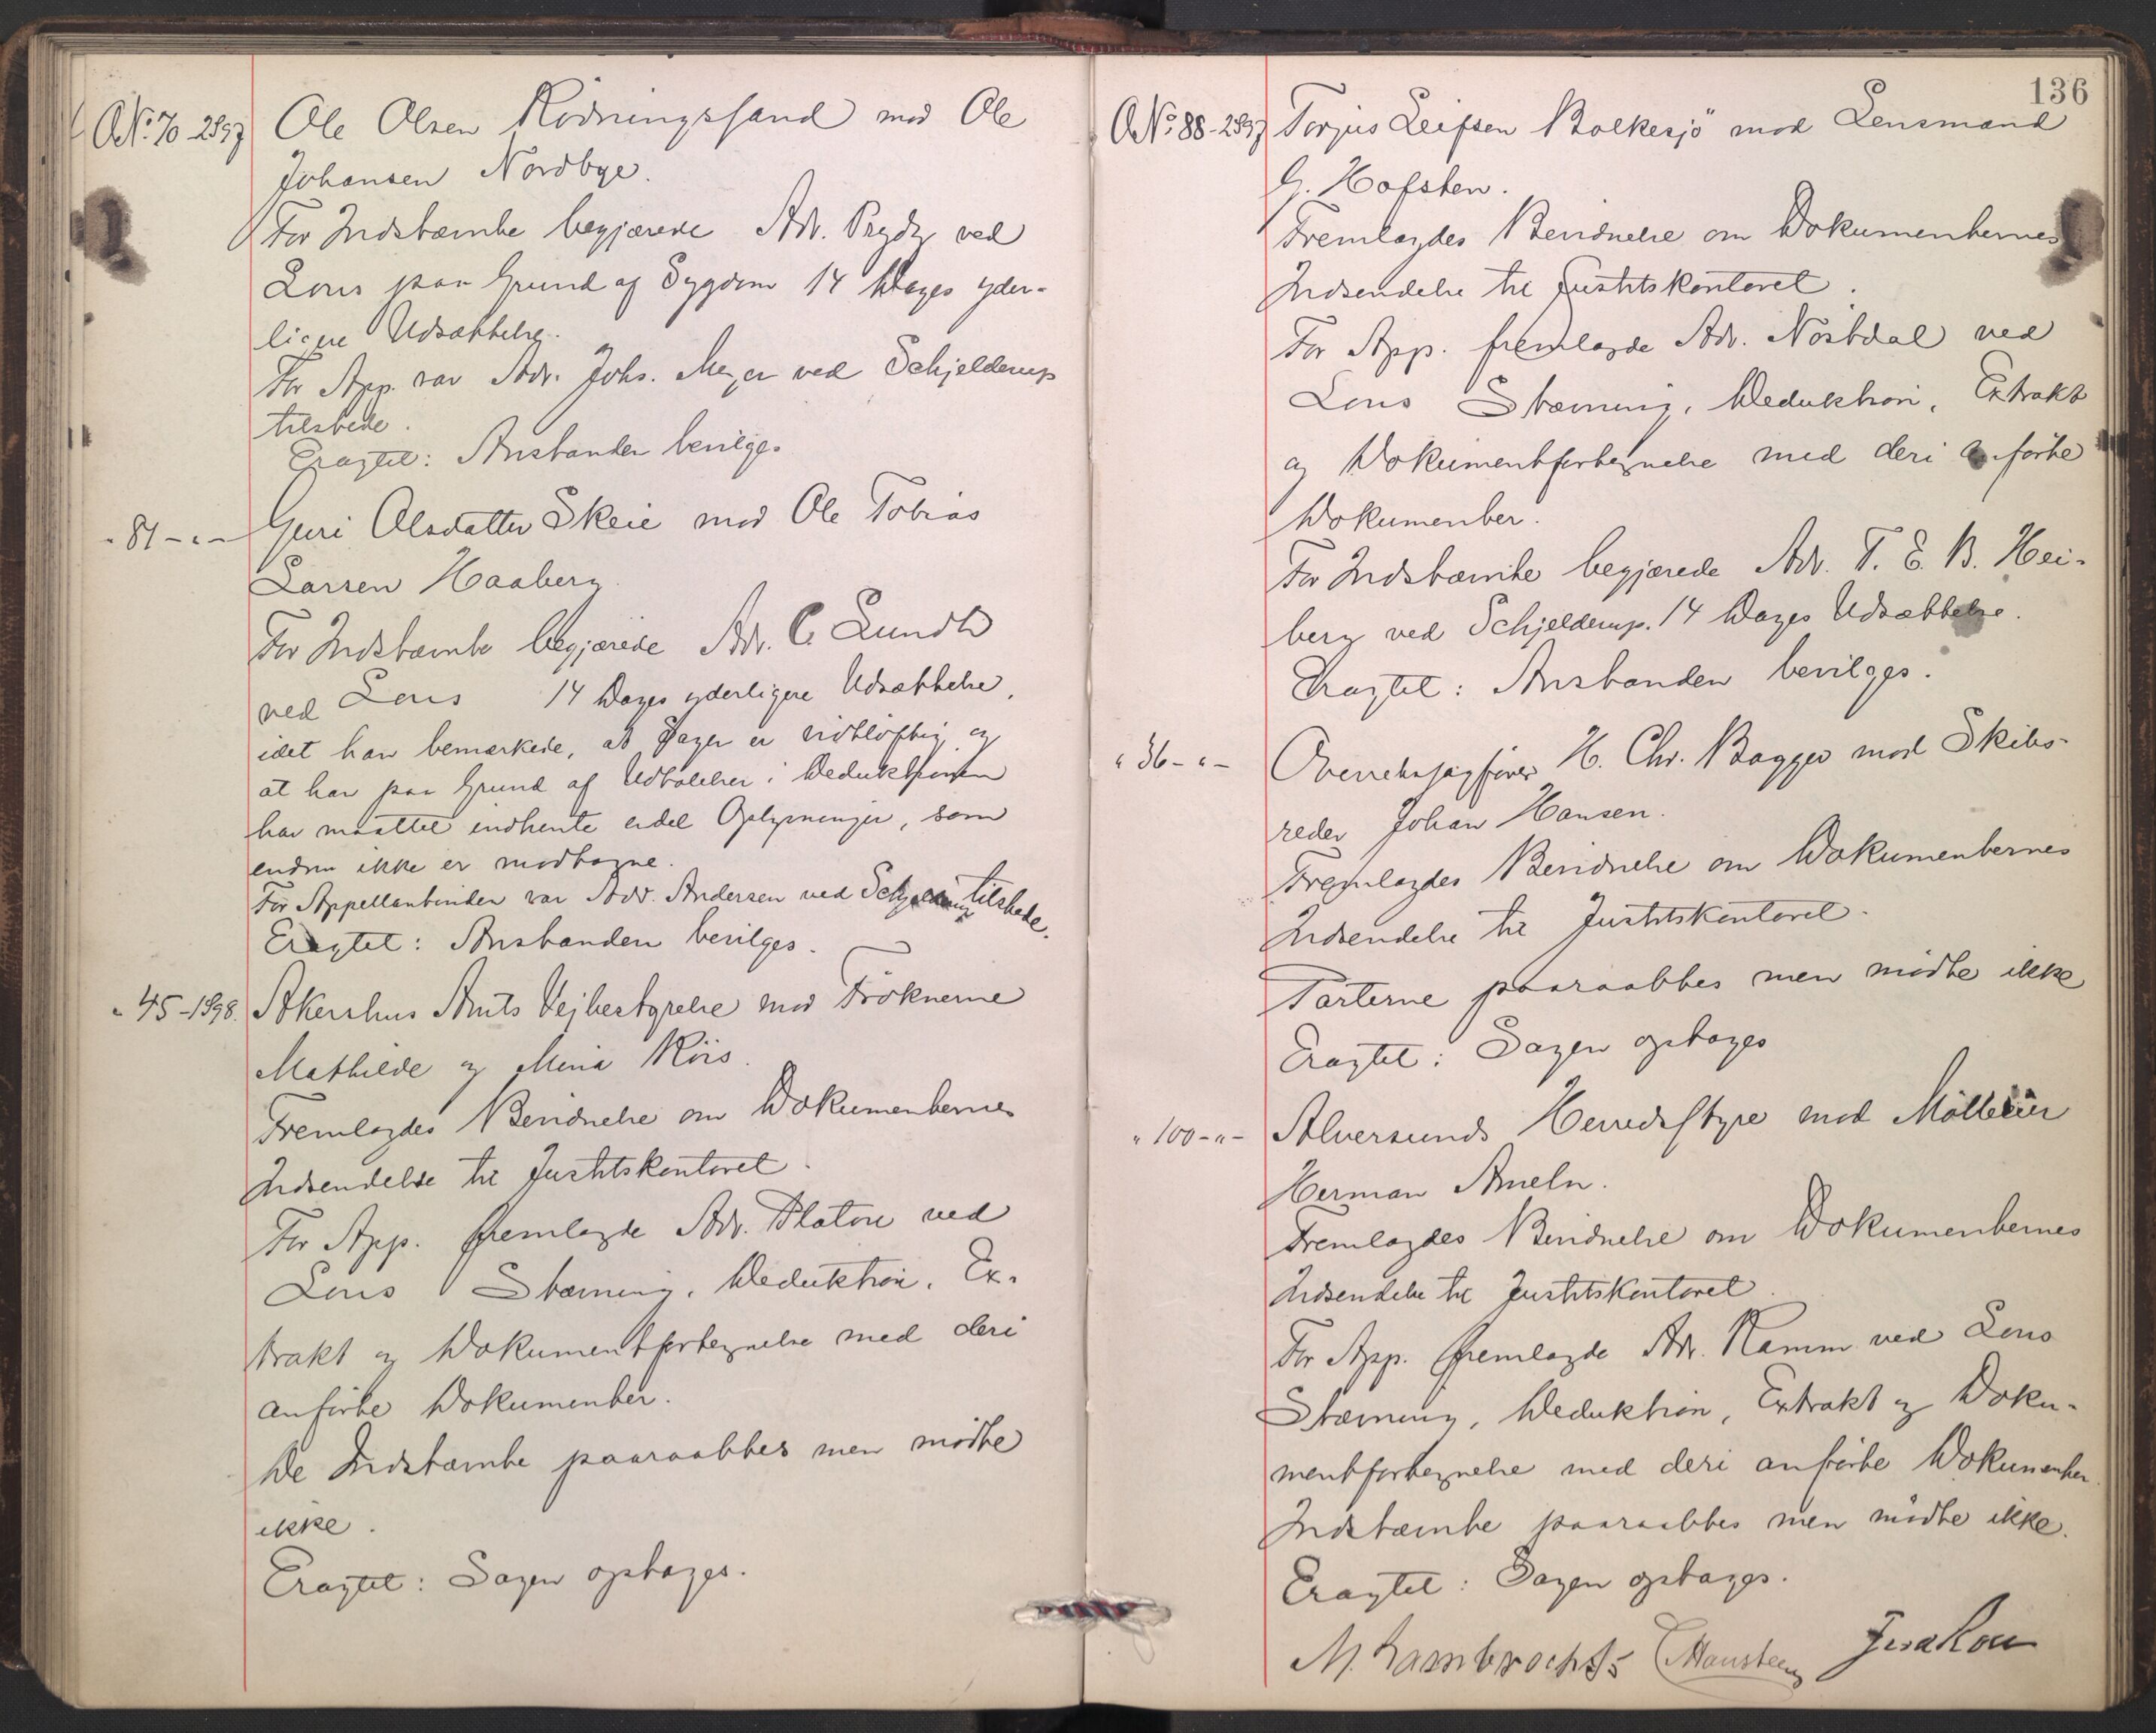 A No. 70-2897 Ole Olsen Rödningssand mod Ole
Johansen Nordbye.
For Indstævnte begjærede Adv. Prydz ved
Lous paa Grund af Sygdom 14 Dages yder-
ligere Udsættelse.
For App. var Adv. Johs. Meyer ved Schjelderup
tilstede.
Eragtet: Anstanden bevilges
" 81 - " - Guri Olsdatter Skeie mod Ole Tobias
Larsen Haaberg.
For Indstævnte begjærede Adv. C. Lundh
ved Lous 14 Dages yderligere Udsættelse,
idet han bemærkede, at Sagen er vidtløftig og
at han paa Grund af Udtalelser i Deduktionen
har maattet indhente endel Oplysninger, som
endnu ikke er modtagne.
For Appellantinden var Adv. Andersen ved Schjelderup tilstede.
Eragtet: Anstanden bevilges.
" 45-1898. Akershus Amts Vejbestyrelse mod Fröknerne
Mathilde og Mina Riis.
Fremlagdes Bevidnelse om Dokumenternes
Indsendelse til Justitskontoret.
For App. fremlagde Adv. Platou ved
Lous Stævning, Deduktion, Ex-
trakt og Dokumentfortegnelse med deri
anförte Dokumenter.
De Indstævnte paaraabtes men mödte
ikke.
Eragtet: Sagen optages.
136
A No. 88-2897 Torjus Leifsen Bolkesjö mod Lensmand
G. Hofsten.
Fremlagdes Bevidnelse om Dokumenternes
Indsendelse til Justitskontoret.
For App. fremlagde Adv. Nöstdal ved
Lous Stævning, Deduktion, Extrakt
og Dokumentfortegnelse med deri anförte
Dokumenter.
For Indstævnte begjærede Adv. T. E. B. Hei-
berg ved Schjelderup 14 Dages Udsættelse.
Eragtet: Anstanden bevilges.
" 36 - " - Overretssagförer H. Chr. Bagge mod Skibs-
reder Johan Hansen.
Fremlagdes Bevidnelse om Dokumenternes
Indsendelse til Justitskontoret.
Parterne paaraabtes men mödte ikke
Eragtet: Sagen optages
" 100 - " - Alversunds Herredsstyre mod Mölleier
Herman Ameln.
Fremlagdes Bevidnelse om Dokumenternes
Indsendelse til Justitskontoret.
For App. fremlagde Adv. Kamm ved Lous
Stævning, Deduktion, Extrakt og Doku-
mentfortegnelse med deri anförte Dokumenter.
Indstævnte paaraabtes men mödte ikke.
Eragtet: Sagen optages.
M. Lambrechts Hansteen